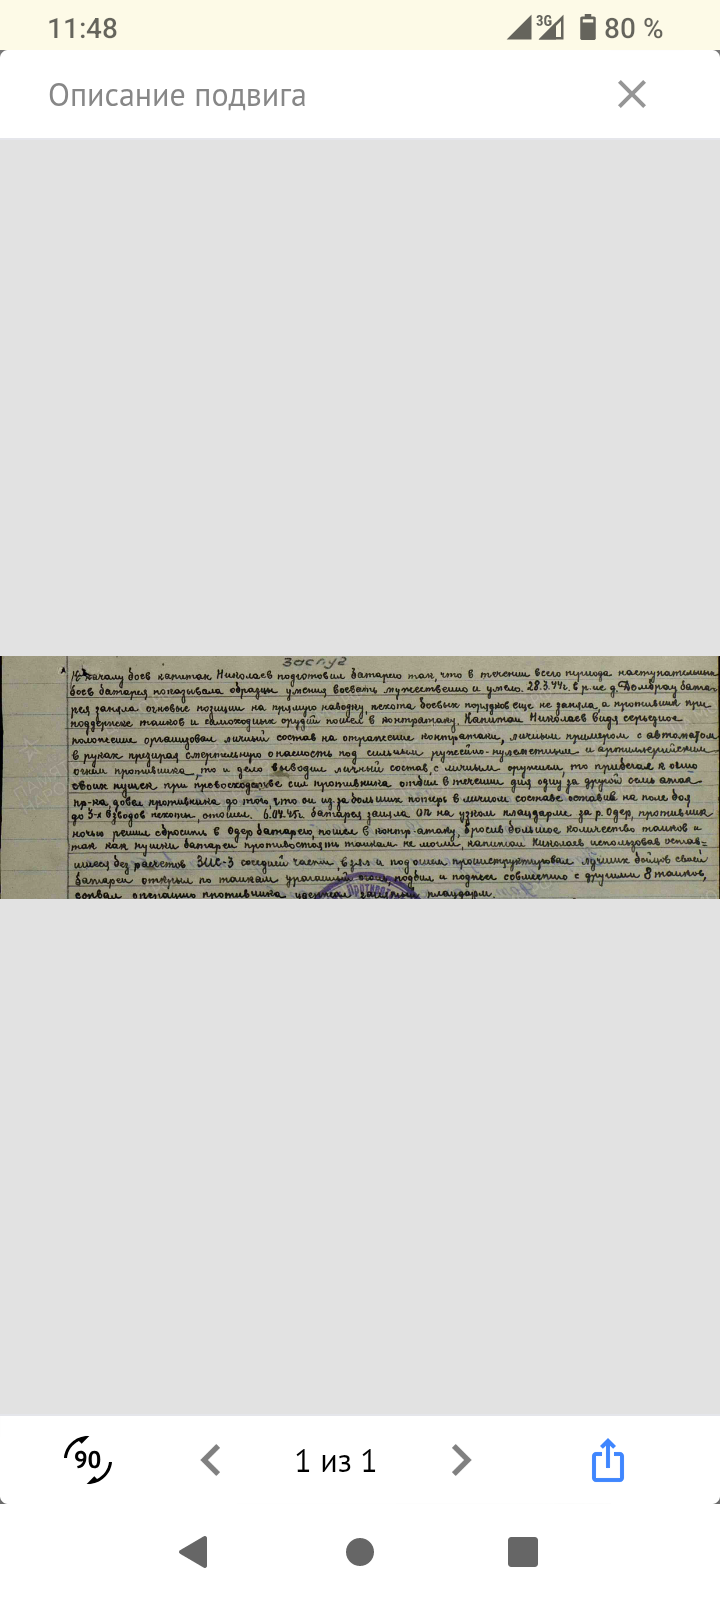 11:48
3G
80 %
Описание подвига
заслуг
К началу боев капитан Николаев подготовил батарею так, что в течении всего периода наступательных
боев батарея показывала образцы умения воевать мужественно и умело. 28.3. в р-не д. батаr
рея заняла огневые позиции на прямую наводку, пехота боевых порядков еще не заняла, а противник при
поддержке танков и самоходных орудий пошел в контратаку. Капитан Николаев видя серьезное
положение организовал личный состав на отражение контратаки, личным примером с автоматом
в руках презирая смертельную опасность под сильным ружейно-пулеметным и артиллерийским
огнем противника, то и дело выводил личный состав, с личным оружием, то прибегая к огню
своих пушек при превосходстве сил противника отбил в течении дня одну за другой семь атак
пр-ка, довел противника до того, что он из-за больших потерь в личном составе оставив на поле боя
до 3-х взводов пехоты, отошел. 6.04.45г. батарея заняла ОП на узком плацдарме за р. Одер, противник
ночью решил сбросить в Одер батарею, пошел в контр-атаку, бросив большое количество танков и
так как пушки батареи противостоять танкам не могли, капитан Николаев использовав остав=
шиеся без расчетов ЗИС-3 соседней части взял и под огнем проинструктировал лучших бойцов своей
батареи открыл по танкам ураганный огонь, подбил и поджег совместно с другими 8 танков,
сорвал операцию противника удержал плацдарм.
90
1 из 1